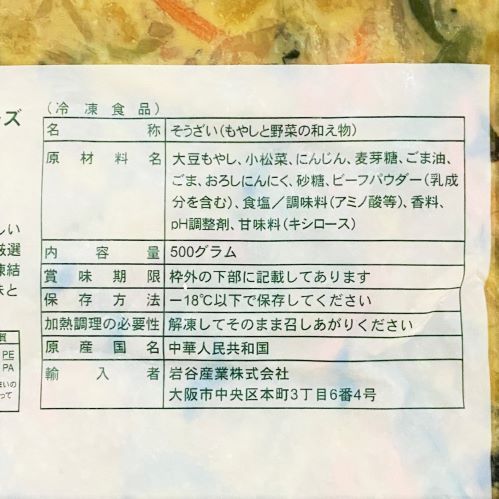 ーズ
(冷凍食品)
名称 そうざい(もやしと野菜の和え物)
原材料名 大豆もやし、小松菜、にんじん、麦芽糖、ごま油、
ごま、おろしにんにく、砂糖、ビーフパウダー(乳成
分を含む)、食塩/調味料(アミノ酸等)、香料、
pH調整剤、甘味料(キシロース)
内容量 500グラム
賞味期限 枠外の下部に記載してあります
保存方法 −18℃以下で保存してください
加熱調理の必要性 解凍してそのまま召しあがりください
原産国名 中華人民共和国
輸入者 岩谷産業株式会社
大阪市中央区本町3丁目6番4号
しい
厳選
凍結
味と
質
PE
PA
まいの
って